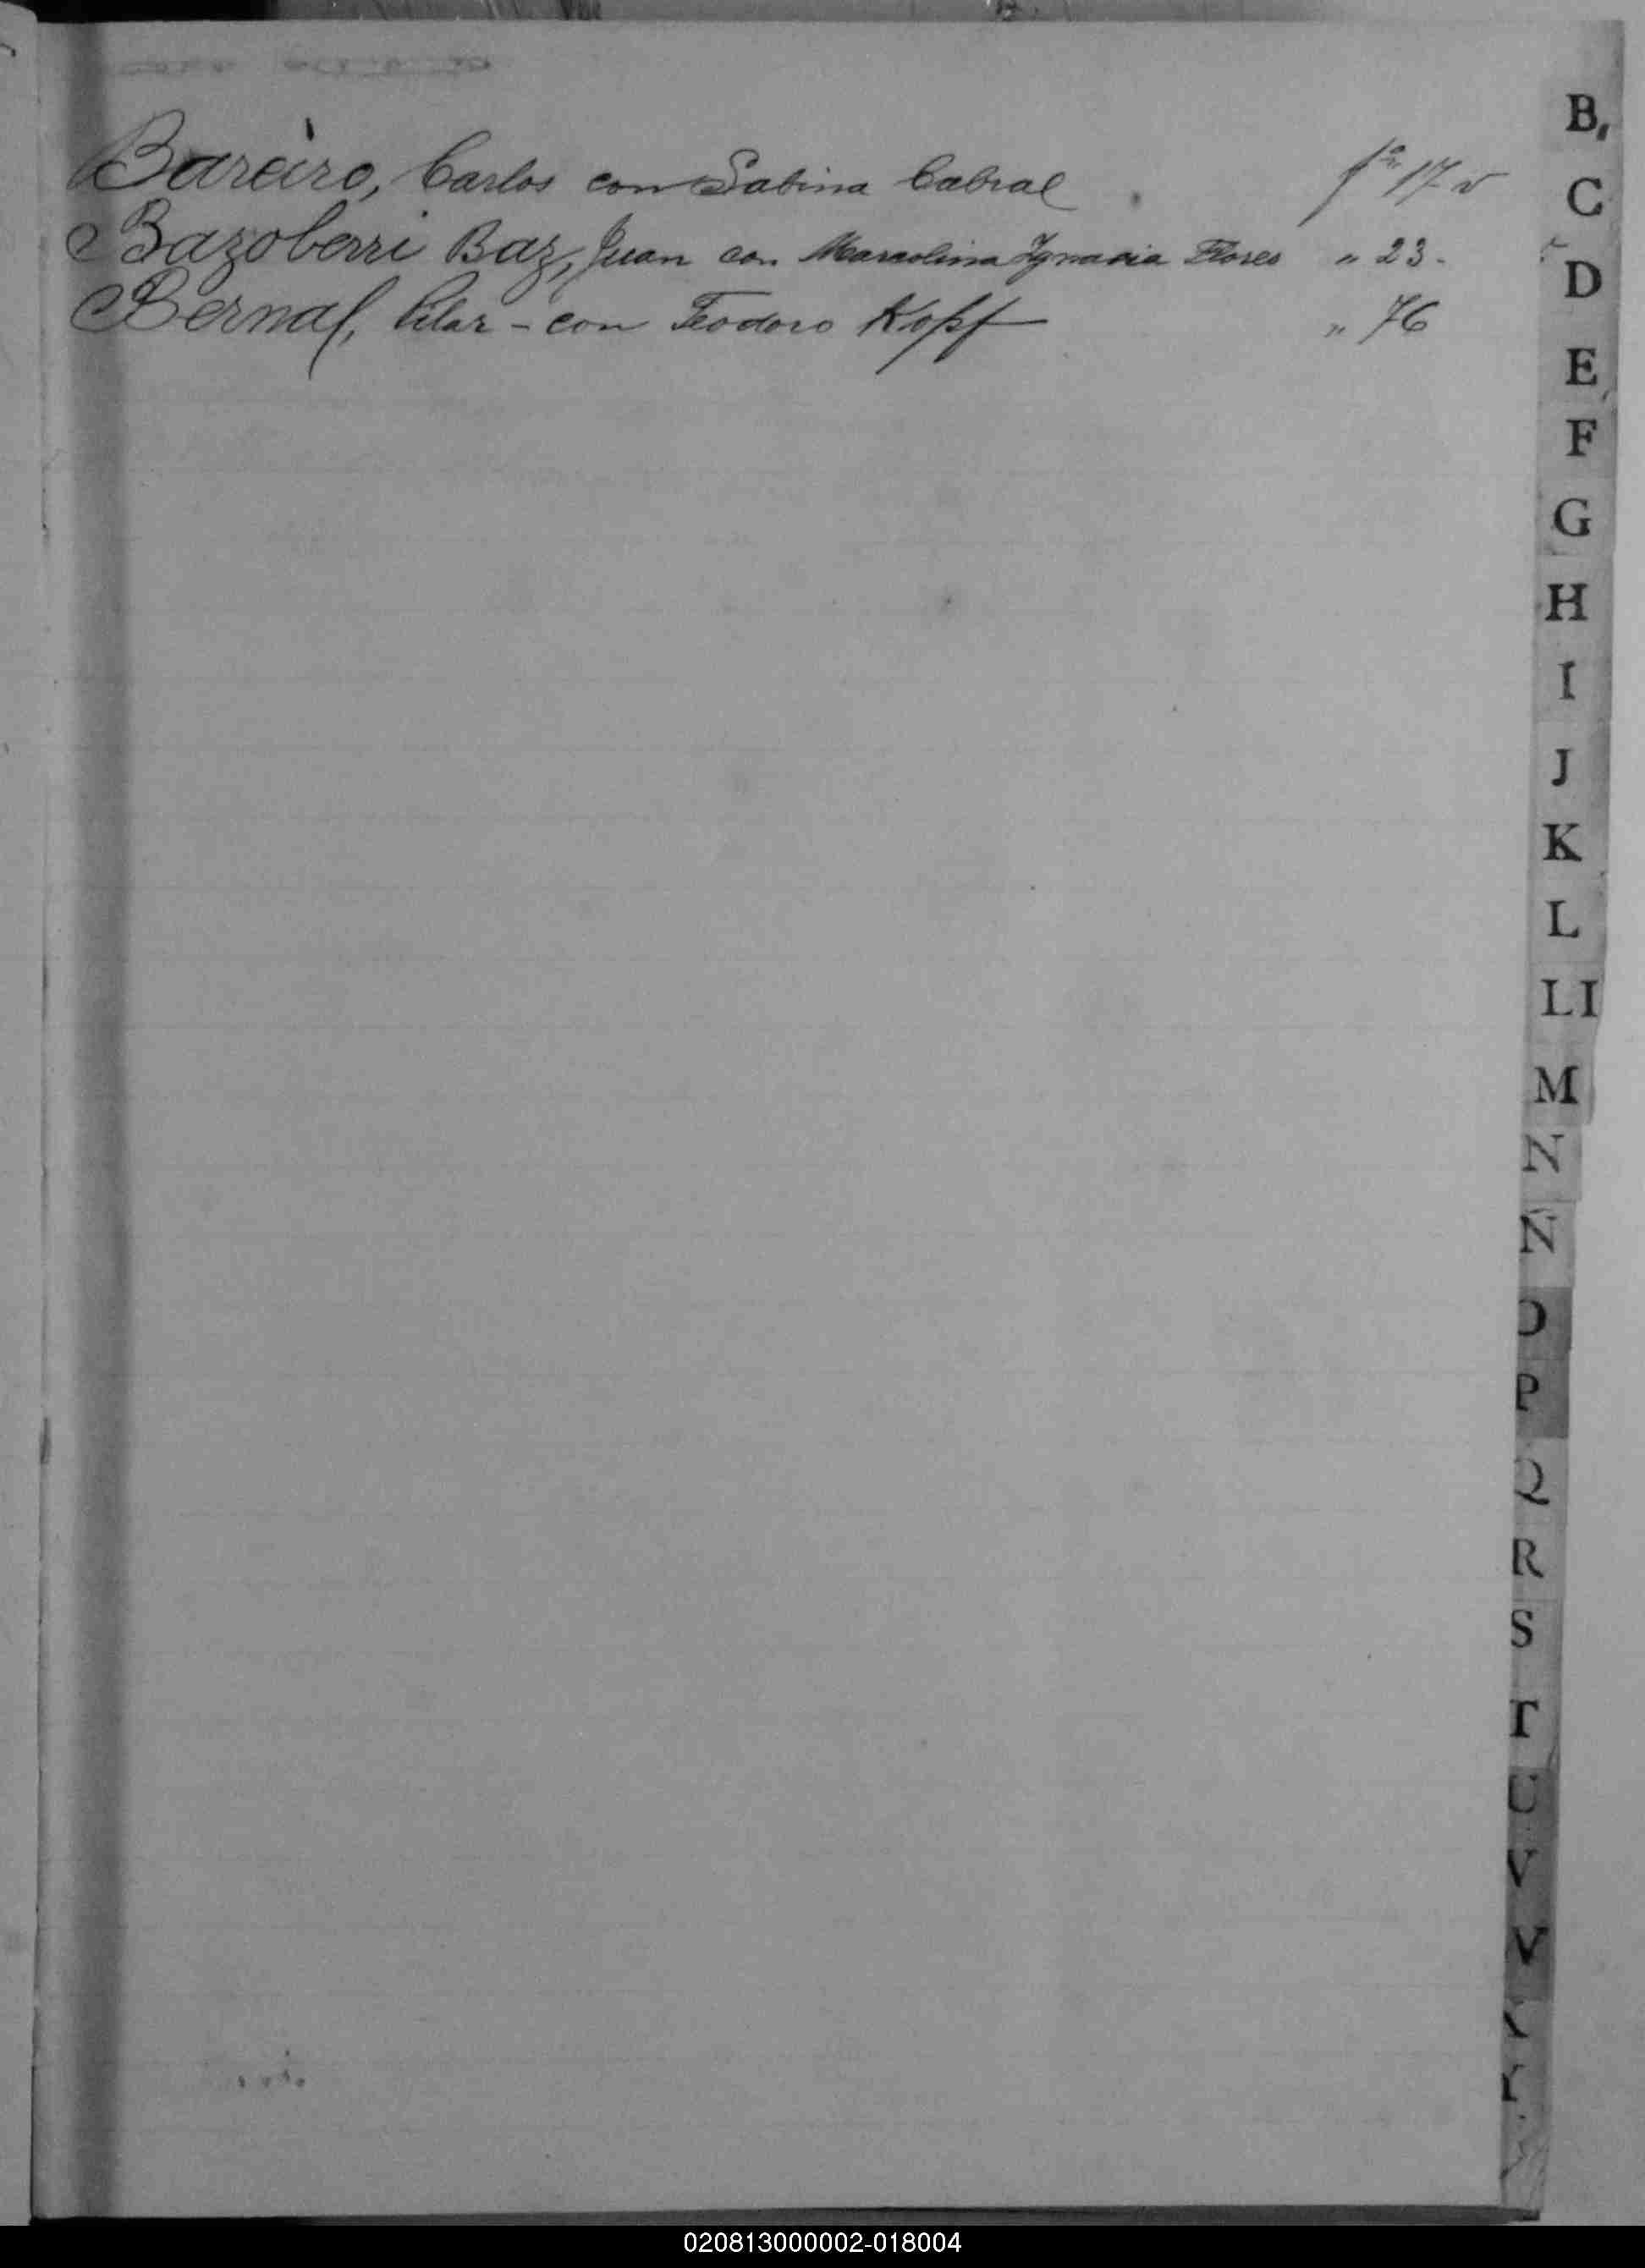 Bareiro, Carlos con Sabina Cabral fo 17 v
Bazoberri Baz, Juan con Marcolina Ygnacia Flores " 23.
Bernal, Pilar - con Teodoro Kopf " 76
B
C
D
E
F
G
H
I
J
K
L
Ll
M
N
Ñ
O
P
Q
R
S
T
U
V
020813000002-018004